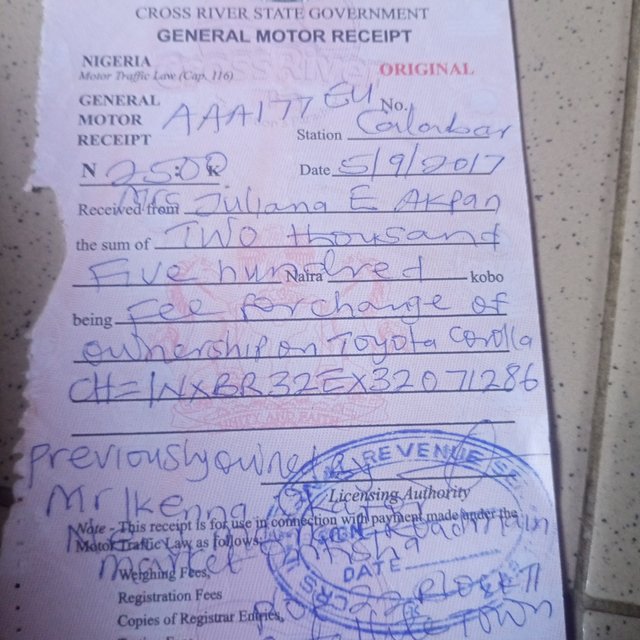 CROSS RIVER STATE GOVERNMENT
GENERAL MOTOR RECEIPT
NIGERIA
Motor Traffic Law (Cap. 116)
ORIGINAL
GENERAL MOTOR RECEIPT AAA177EU No.
Station Calabar
N 25:00 K Date 5/9/2017
Received from Mrs Juliana E Akpan
the sum of Two thousand
Five hundred Naira kobo
being Fee for change of
ownership on Toyota Corolla
CH=1NXBR32EX32071286
UNITY AND FAITH
previously owned by
Mr Ikenna
Licensing Authority
Note - This receipt is for use in connection with payment made under the
Motor Traffic Law as follows
Road main
market Onitsha
Weighing Fees,
Registration Fees
Copies of Registrar Entries,
Town
REVENUE
SIGN
DATE